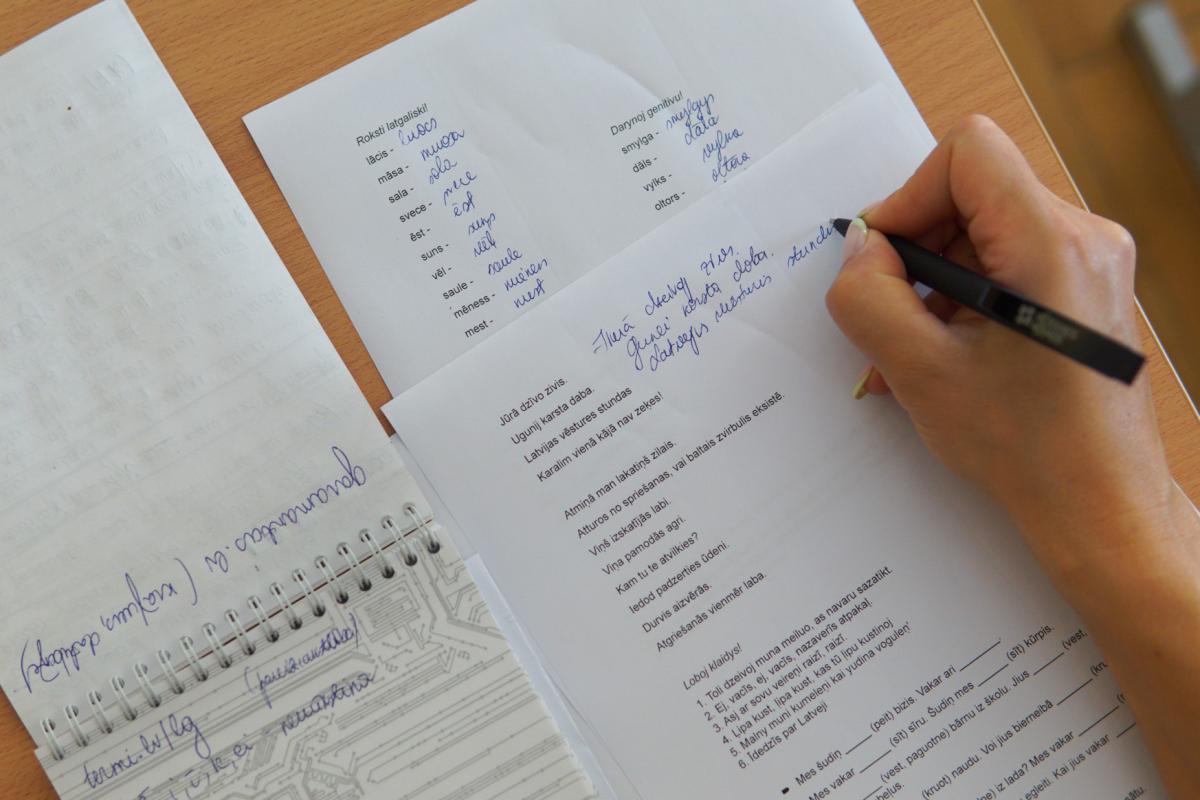 Roksti latgaliski!
lācis - luocs
māsa - muosa
sala - sola
svece - svece
ēst - ēst
suns - suņs
vēl - vēļ
saule - saule
mēness - mēness
mest - mest
Darynoj genitivu!
smylga - smylgys
dāls - dāla
vylks - vylka
oltors - oltora
Jiurā dzeivoj zivs.
guņei korsta doba.
Latvejis viesturis stundis
Jūrā dzīvo zivis.
Ugunij karsta daba.
Latvijas vēstures stundas
Karalim vienā kājā nav zeķes!
Atmiņā man lakatiņš zilais.
Atturos no spriešanas, vai baltais zvirbulis eksistē.
Viņš izskatījās labi.
Viņa pamodās agri.
Kam tu te atvilkies?
Iedod padzerties ūdeni.
Durvis aizvērās.
Atgriešanās vienmēr laba.
Loboj klaidys!
1. Toli dzeivoj muna meiluo, as navaru sazatikt.
2. Ej, vacīs, ej, vacīs, nazaverīs atpakaļ.
3. Asj ar sovu veireņi raizī, raizī.
4. Lipa kust, lipa kust, kas tū lipu kustinoj
5. Malny muni kumeleņi kai yudina voguleņ'
6. Idedzīs par Latveji
Mes šudiņ ____ (peit) bizis. Vakar ari ____
Mes vakar ____ (sīt) sīru. Šudiņ mes ____ (sīt) kūrpis.
____ (vest, paguotne) bārnu iz školu. Jius ____ (vest,
beļus.
____ (kruot) naudu. Voi jius bierneibā ____ (kru
ne) iz lada? Mes vakar ____
egleiti. Kai jius vakar ____
garamantas.lv
termi.lv/lg